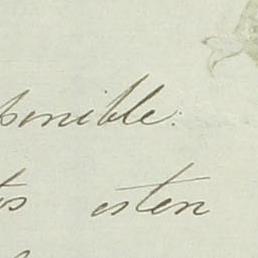 ponible.
os esten